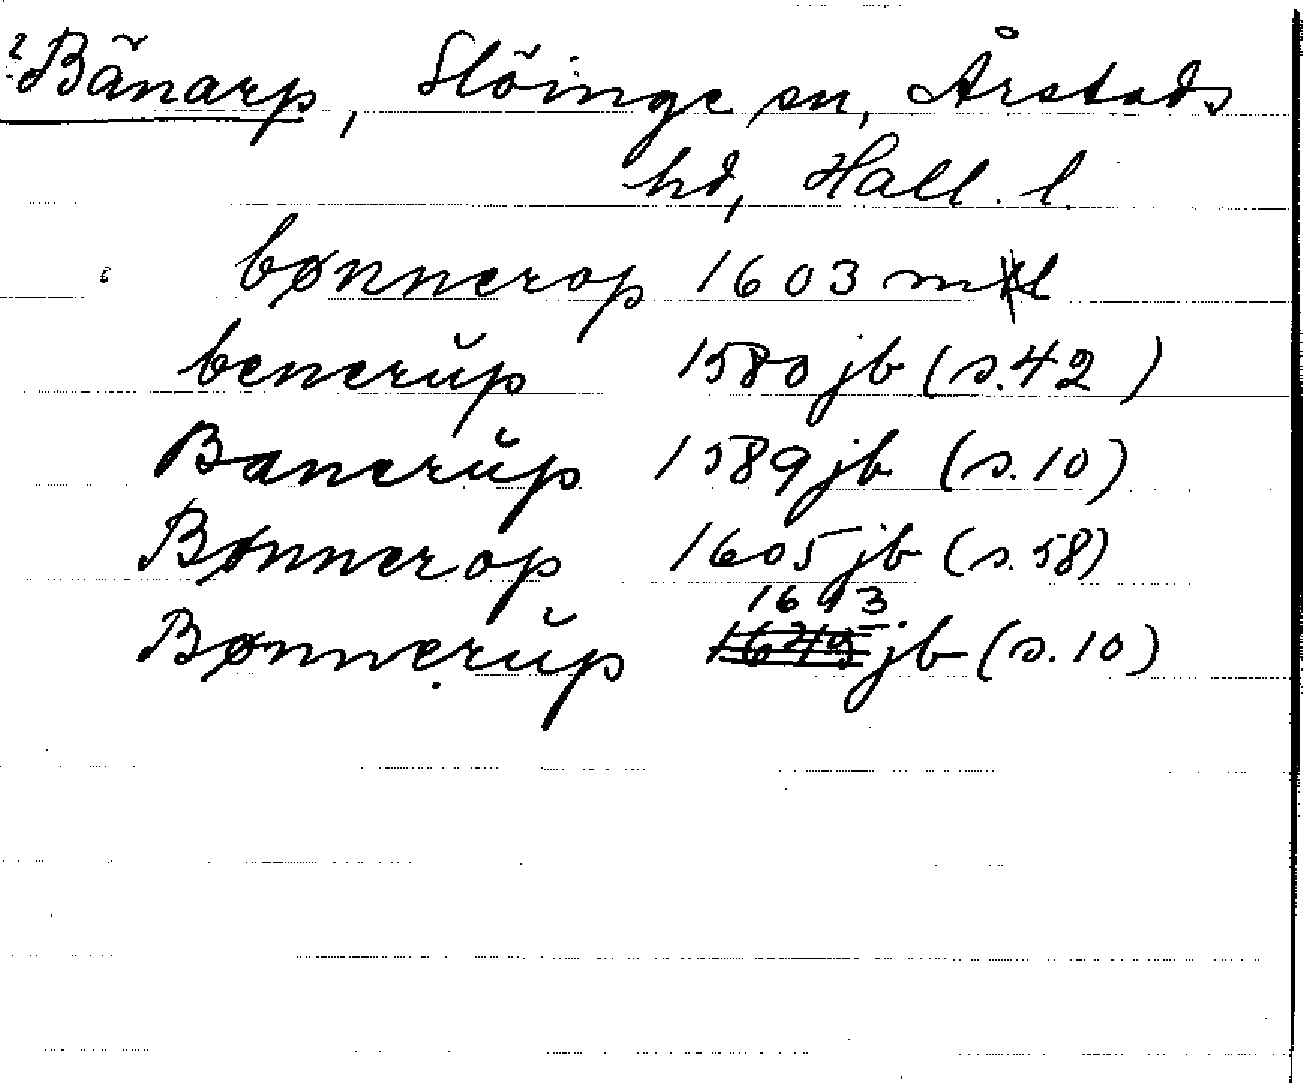 ² Bänarp, Slöinge sn, Årstads
hd, Hall. l.
bønnerop 1603 mtl
benerŭp 1580 jb (s. 42)
Banerŭp 1589 jb (s. 10)
Bønnerop 1605 jb (s. 58)
1693.
Bønnerŭp jb (s. 10)